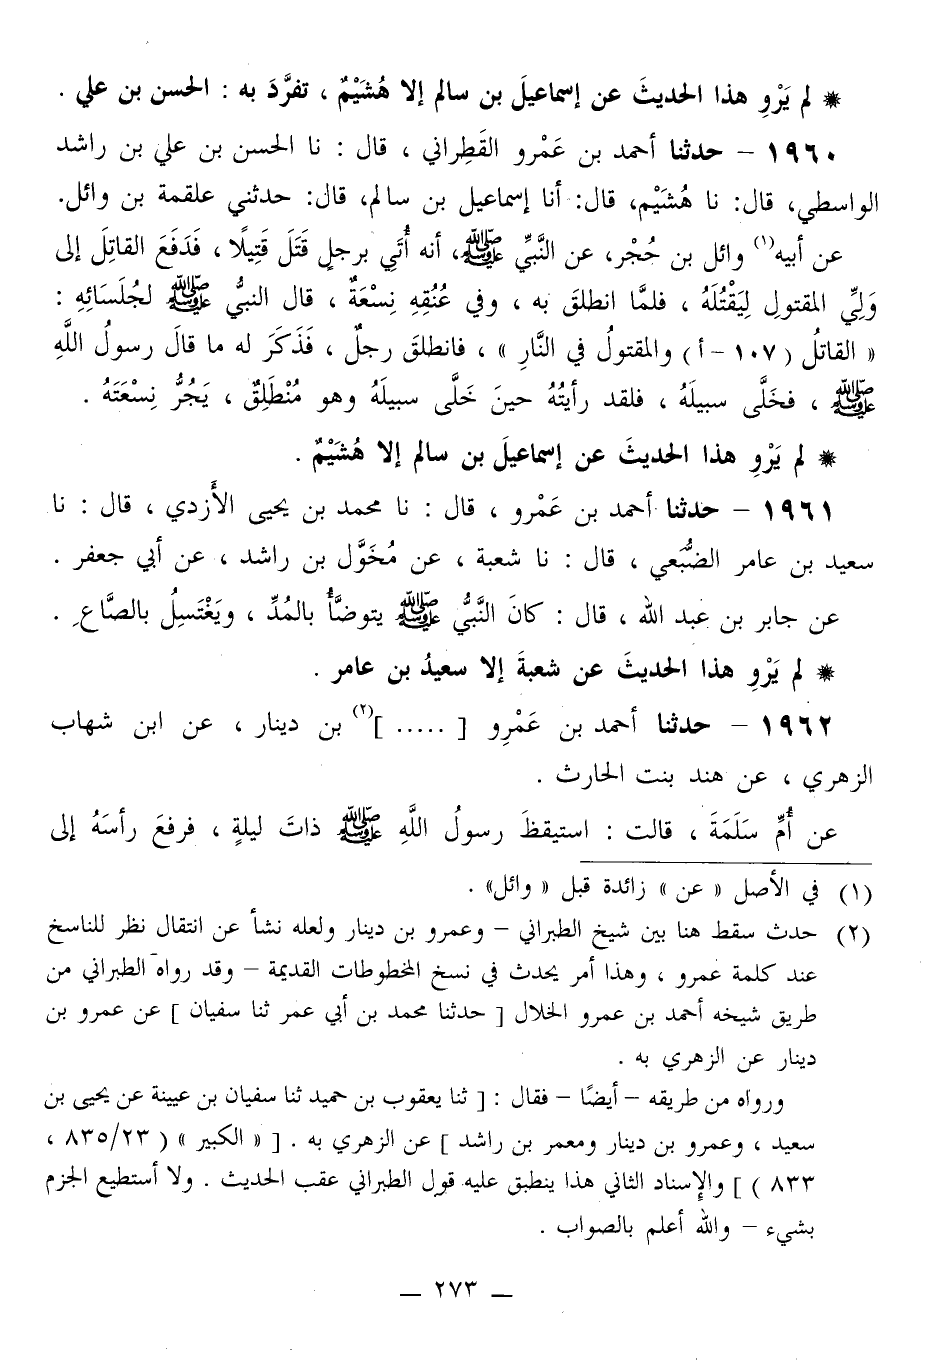 * لم يَرْوِ هذا الحديثَ عن إسماعيلَ بن سالم إلا هُشَيْمٌ ، تفرَّدَ به : الحسن بن علي .
١٩٦٠ – حدثنا أحمد بن عَمْرو القَطِراني ، قال : نا الحسن بن علي بن راشد
الواسطي، قال: نا هُشَيْم، قال: أنا إسماعيل بن سالم، قال: حدثني علقمة بن وائل.
عن أبيه(١) وائل بن حُجْر، عن النَّبِّي ﷺ، أنه أُتَي برجلٍ قَتَلَ قَتِيلًا ، فَدَفَعَ القاتِلَ إلى
وَلِيِّ المقتولِ لِيَقْتُلَهُ ، فلمَّا انطلقَ به ، وفي عُنُقِهِ نِسْعَةٌ ، قال النبيُّ ﷺ لجُلَسَائِهِ :
« القاتلُ ( ١٠٧ – أ ) والمقتولُ في النَّارِ » ، فانطلقَ رجلٌ ، فَذَكَرَ له ما قالَ رسولُ اللَّهِ
ﷺ ، فخَلَّى سبيلَهُ ، فلقد رأيتُهُ حينَ خَلَّى سبيلَهُ وهو مُنْطَلِقٌ ، يَجُرُّ نِسْعَتَهُ .
* لم يَرْوِ هذا الحديثَ عن إسماعيلَ بن سالم إلا هُشَيْمٌ .
١٩٦١ – حدثنا أحمد بن عَمْرو ، قال : نا محمد بن يحيى الأَزدي ، قال : نا
سعيد بن عامر الضُّبَعي ، قال : نا شعبة ، عن مُخَوَّل بن راشد ، عن أبي جعفر .
عن جابر بن عبد الله ، قال : كانَ النَّبيُّ ﷺ يتوضَّأُ بالمُدِّ ، ويَغْتَسِلُ بالصَّاعِ .
* لم يَرْوِ هذا الحديثَ عن شعبةَ إلا سعيدُ بن عامر .
١٩٦٢ – حدثنا أحمد بن عَمْرِو [ ..... ](٢) بن دينار ، عن ابن شهاب
الزهري ، عن هند بنت الحارث .
عن أُمِّ سَلَمَةَ ، قالت : استيقظَ رسولُ اللَّهِ ﷺ ذاتَ ليلةٍ ، فرفعَ رأسَهُ إلى
(١) في الأصل « عن » زائدة قبل « وائل» .
(٢) حدث سقط هنا بين شيخ الطبراني – وعمرو بن دينار ولعله نشأ عن انتقال نظر للناسخ
عند كلمة عمرو ، وهذا أمر يحدث في نسخ المخطوطات القديمة – وقد رواه الطبراني من
طريق شيخه أحمد بن عمرو الخلال [ حدثنا محمد بن أبي عمر ثنا سفيان ] عن عمرو بن
دينار عن الزهري به .
ورواه من طريقه – أيضًا – فقال : [ ثنا يعقوب بن حميد ثنا سفيان بن عيينة عن يحيى بن
سعيد ، وعمرو بن دينار ومعمر بن راشد ] عن الزهري به . [ « الكبير » ( ٨٣٥/٢٣ ،
٨٣٣ ) ] والإسناد الثاني هذا ينطبق عليه قول الطبراني عقب الحديث . ولا أستطيع الجزم
بشيء – والله أعلم بالصواب .
— ٢٧٣ —